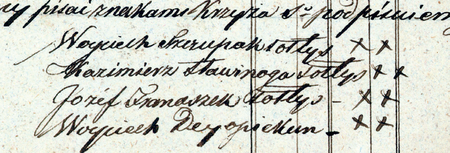 pisać znakami Krzyża Sº podpisuiemy
Woyciech Szczupak Sołtys ××
Kazimierz Stawinoga Sołtys ××
Józéf Jranaszek Sołtys - ××
Woyciech Deyopiekun - ××